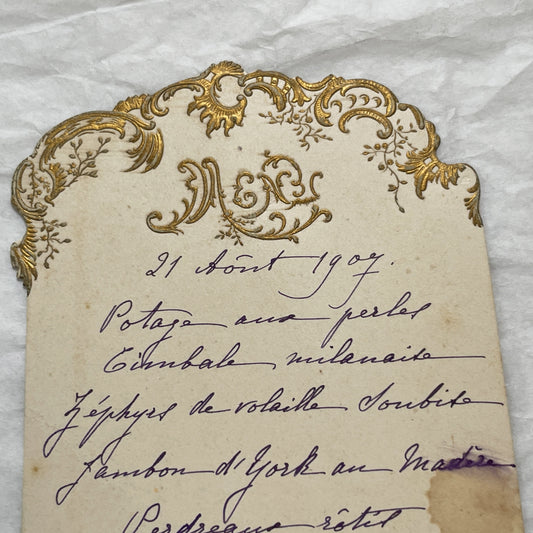 MENU
21 Août 1907.
Potage aux perles
Timbale milanaise
Zéphyrs de volaille Soubise
Jambon d'York au Madère
Perdreaux rôtis